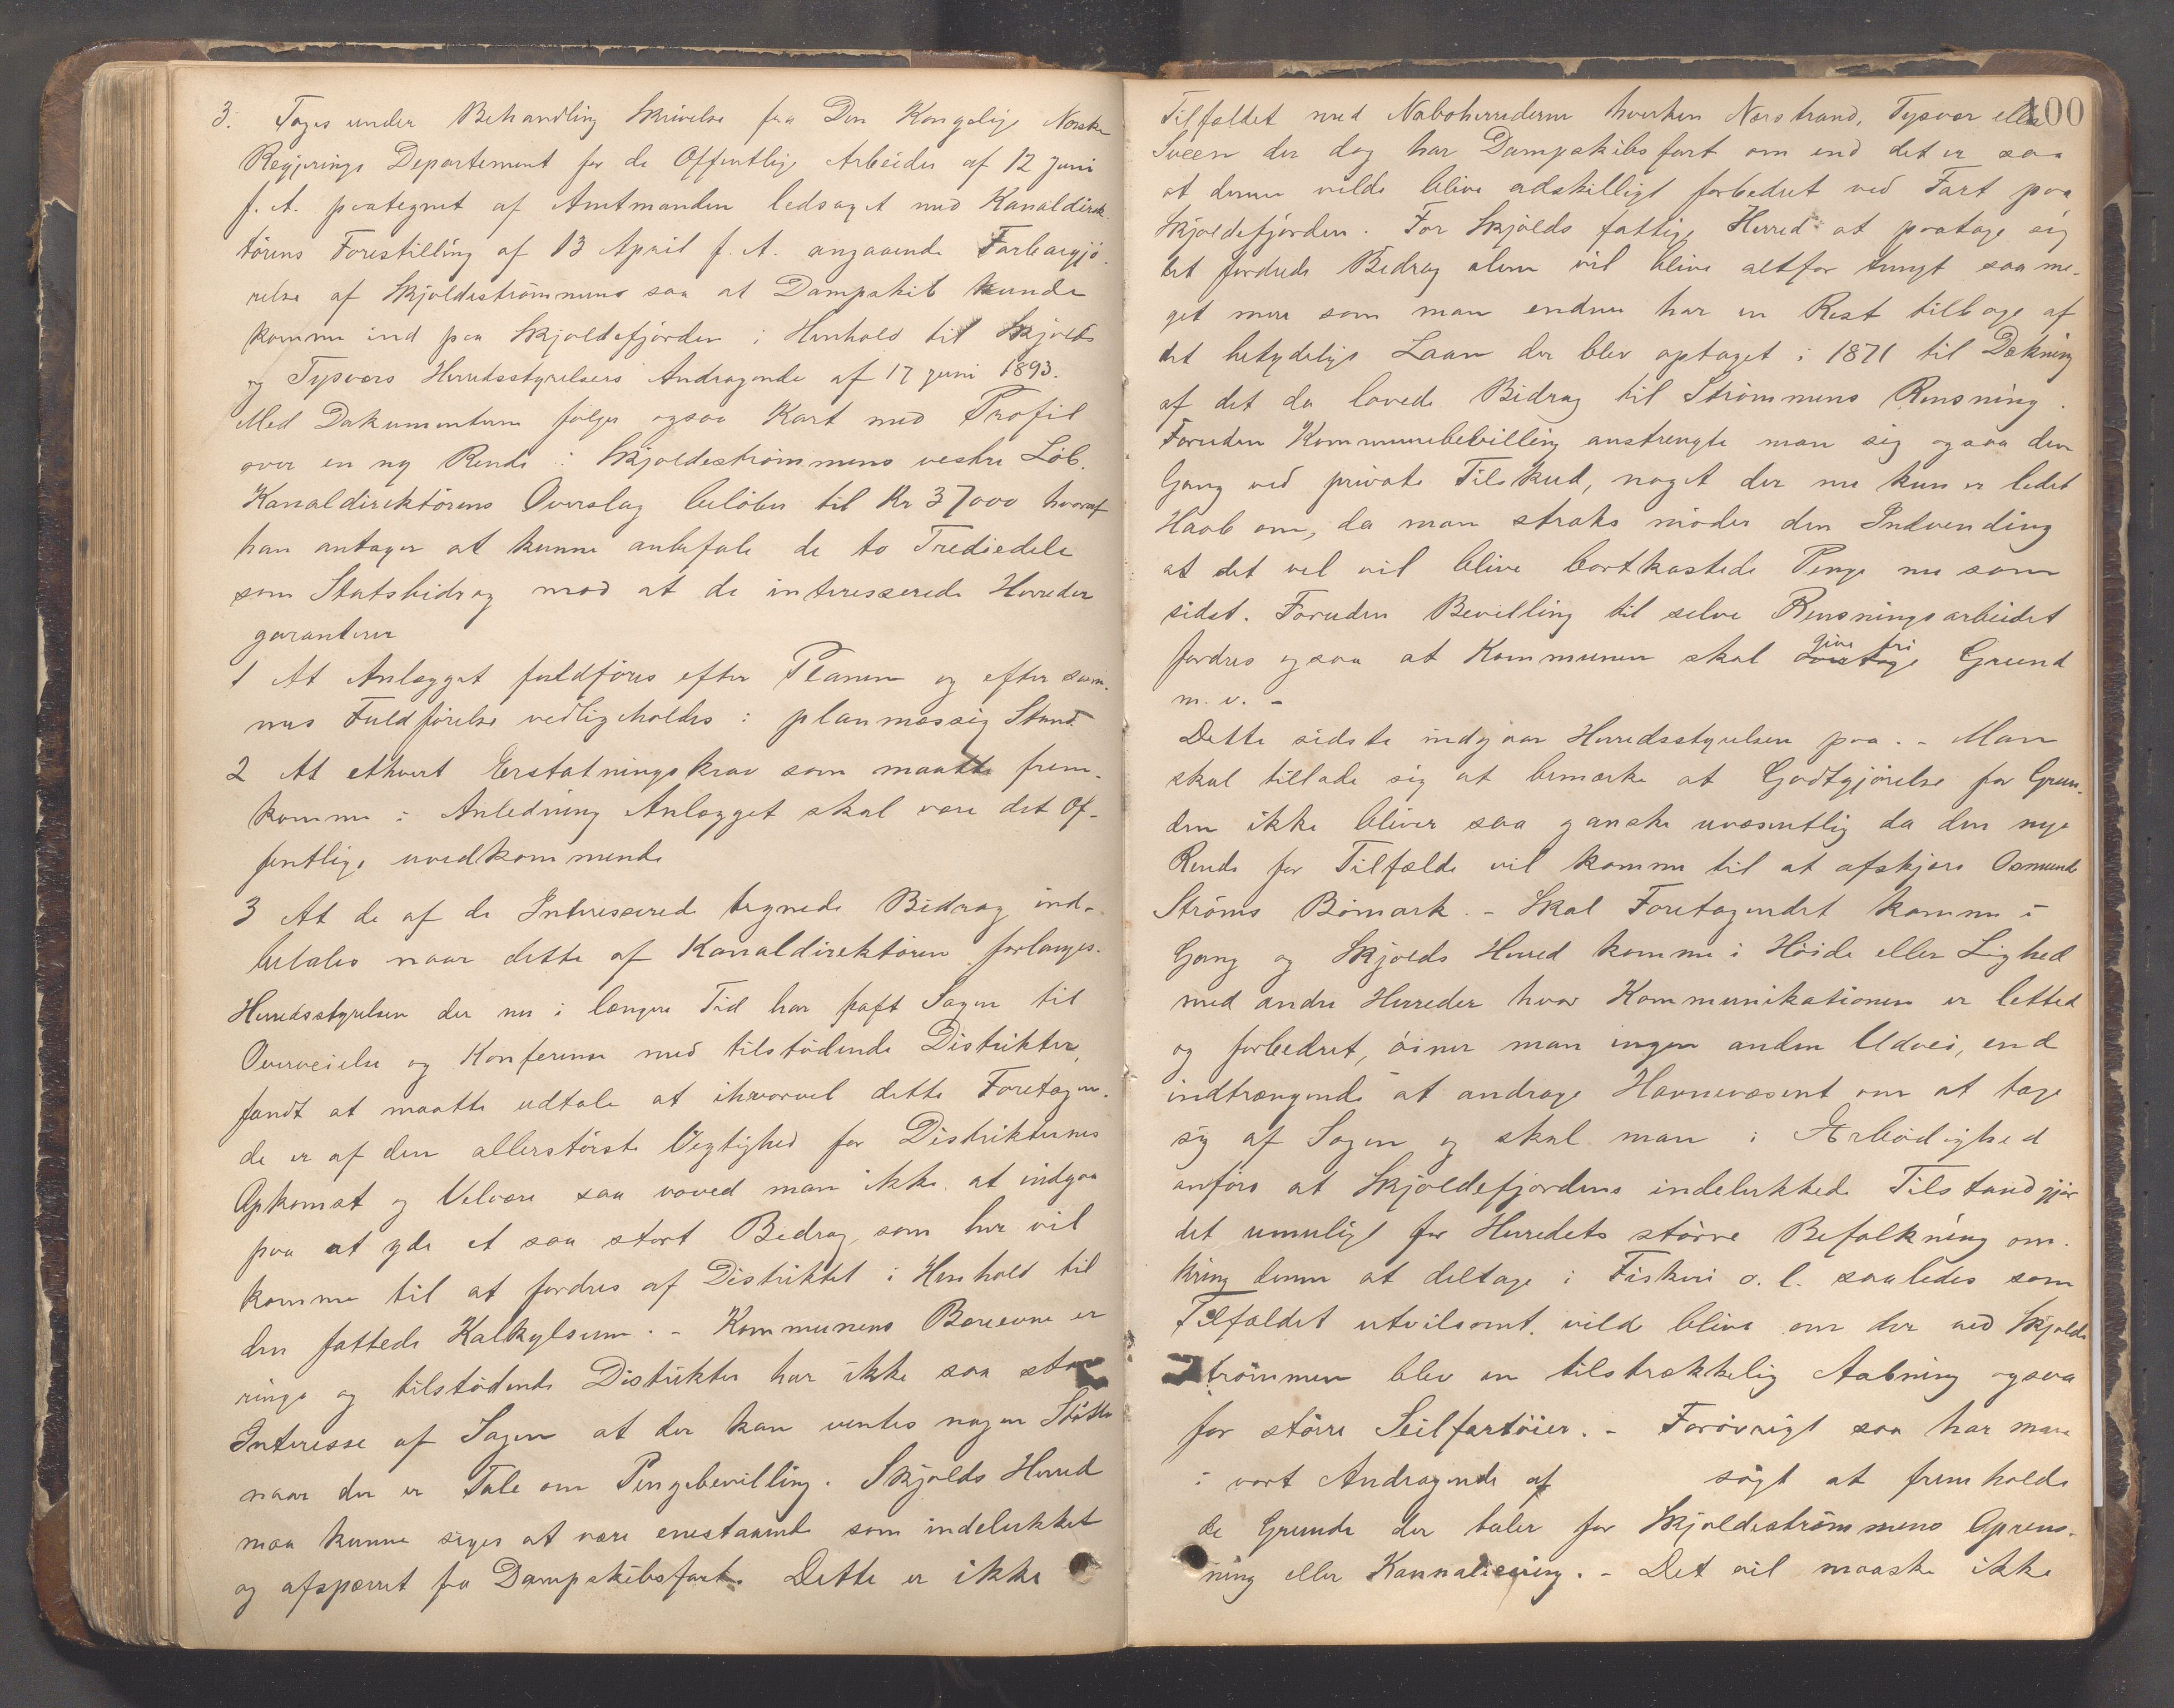 3. Toges under Behandling Skrivelse fra Den Kongelige Norske
Regjerings Departement for de Offentlige Arbeider af 12 Juni
f. A. paategnet af Amtmanden ledsaget med Kanaldirek-
törens Forestilling af 13 April f. A. angaaende Farbargjö-
relse af Skjoldeströmmens saa at Dampskib kunde
komme ind paa Skjoldefjorden i Henhold til Skjolds
og Tysvers Herredsstyrelsers Andragende af 17 juni 1893.
Med Dokumenterne følger ogsaa Kart med Profil
over en ny Rende i Skjoldeströmmens vestre Löb.
Kanaldirektörens Overslag belöber til Kr 37000 hvoraf
han antager at kunne anbefale de to Trediedele
som Statsbidrag mod at de interesserede Herreder
garanterer
1 At Anlægget fuldföres efter Planen og efter sam-
mes Fuldförelse vedligeholdes i planmæssig Stand
2 At ethvert Erstatningskrav som maatte frem-
komme i Anledning Anlægget skal være det Of-
fentlige uvedkommende
3 At de af de Interesserede tegnede Bidrag ind-
betales naar dette af Kanaldirektören forlanges.
Herredsstyrelsen der nu i længere Tid har havt Sagen til
Overveielse og Konferense med tilstödende Distrikter,
fandt at maatte udtale at ihvorvel dette Foretagen-
de er af den allerstörste Vigtighed for Distrikternes
Opkomst og Velvære saa voved man ikke at indgaa
paa at yde et saa stort Bidrag, som her vil
komme til at fordres af Distriktet i Henhold til
den fattede Kalkylsum. - Kommunens Bæreevne er
ringe og tilstödende Distrikter har ikke saa stor
Interesse af Sagen at der kan ventes nogen Stötte
naar der er Tale om Pengebevilling. Skjolds Herred
maa kunne siges at være enestaaende som indelukket
og afspærret fra Dampskibsfart. Dette er ikke
100
Tilfældet med Naboherrederne hverken Nærstrand, Tysvær eller
Sveen der dog har Dampskibsfart om end det er saa
at denne vilde blive adskilligt forbedret ved Fart paa
Skjoldefjorden. For Skjolds fattige Herred at paatage sig
det fordrede Bidrag alene vil blive altfor tungt saa me-
get mere som man endnu har en Rest tilbage af
det betydelige Laan der blev optaget i 1871 til Dækning
af det da lovede Bidrag til Strömmens Rensning.
Foruden Kommunebevilling anstrengte man sig ogsaa den
Gang ved private Tilskud, noget der nu kun er lidet
Haab om, da man straks möder den Indvending
at det vel vil blive bortkastede Penge nu som
sidst. Foruden Bevilling til selve Rensningsarbeidet
give fri
fordres ogsaa at Kommunen skal Grund
m. v. -
Dette sidste indgaar Herredsstyrelsen paa. - Man
skal tillade sig at bemærke at Godtgjörelse for Grun-
den ikke bliver saa ganske uvæsentlig da den nye
Rende for Tilfælde vil komme til at afskjære Osmund
Ströms Bömark. - Skal Foretagendet komme i
Gang og Skjolds Herred komme i Höide eller Lighed
med andre Herreder hvor Kommunikationen er letted
og forbedret, öiner man ingen anden Udvei, end
indtrængende at andrage Havnevæsenet om at tage
sig af Sagen og skal man i Ærbödighed
anföre at Skjoldefjordens indelukkede Tilstand gjör
det umuligt for Herredets större Befolkning om-
kring denne at deltage i Fiskeri o. l. saaledes som
Tilfældet utvilsomt vilde blive om der ved Skjolde
strömmen blev en tilstrækkelig Aabning ogsaa
for större Seilfartöier. - Forövrigt saa har man
i vort Andragende af sögt at fremholde
de Grunde der taler for Skjoldeströmmens Oprens-
ning eller Kannalisering. - Det vil maaske ikke